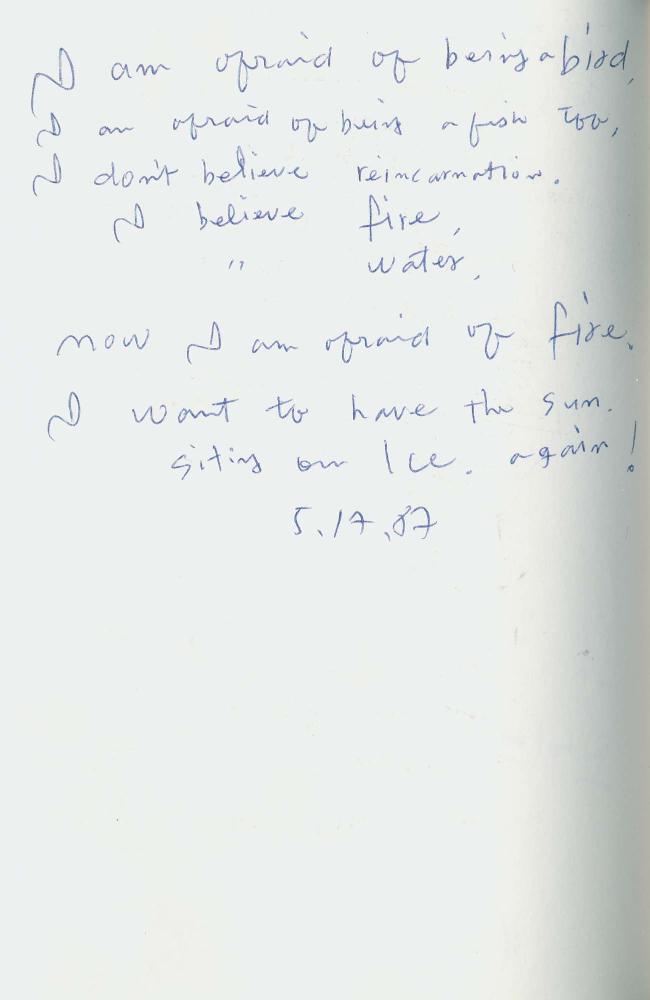 I am afraid of being a bird,
I am afraid of being a fish too,
I don't believe reincarnation.
I believe fire,
" water,
now I am afraid of fire.
I want to have the sun.
siting on Ice. again!
5.17.87